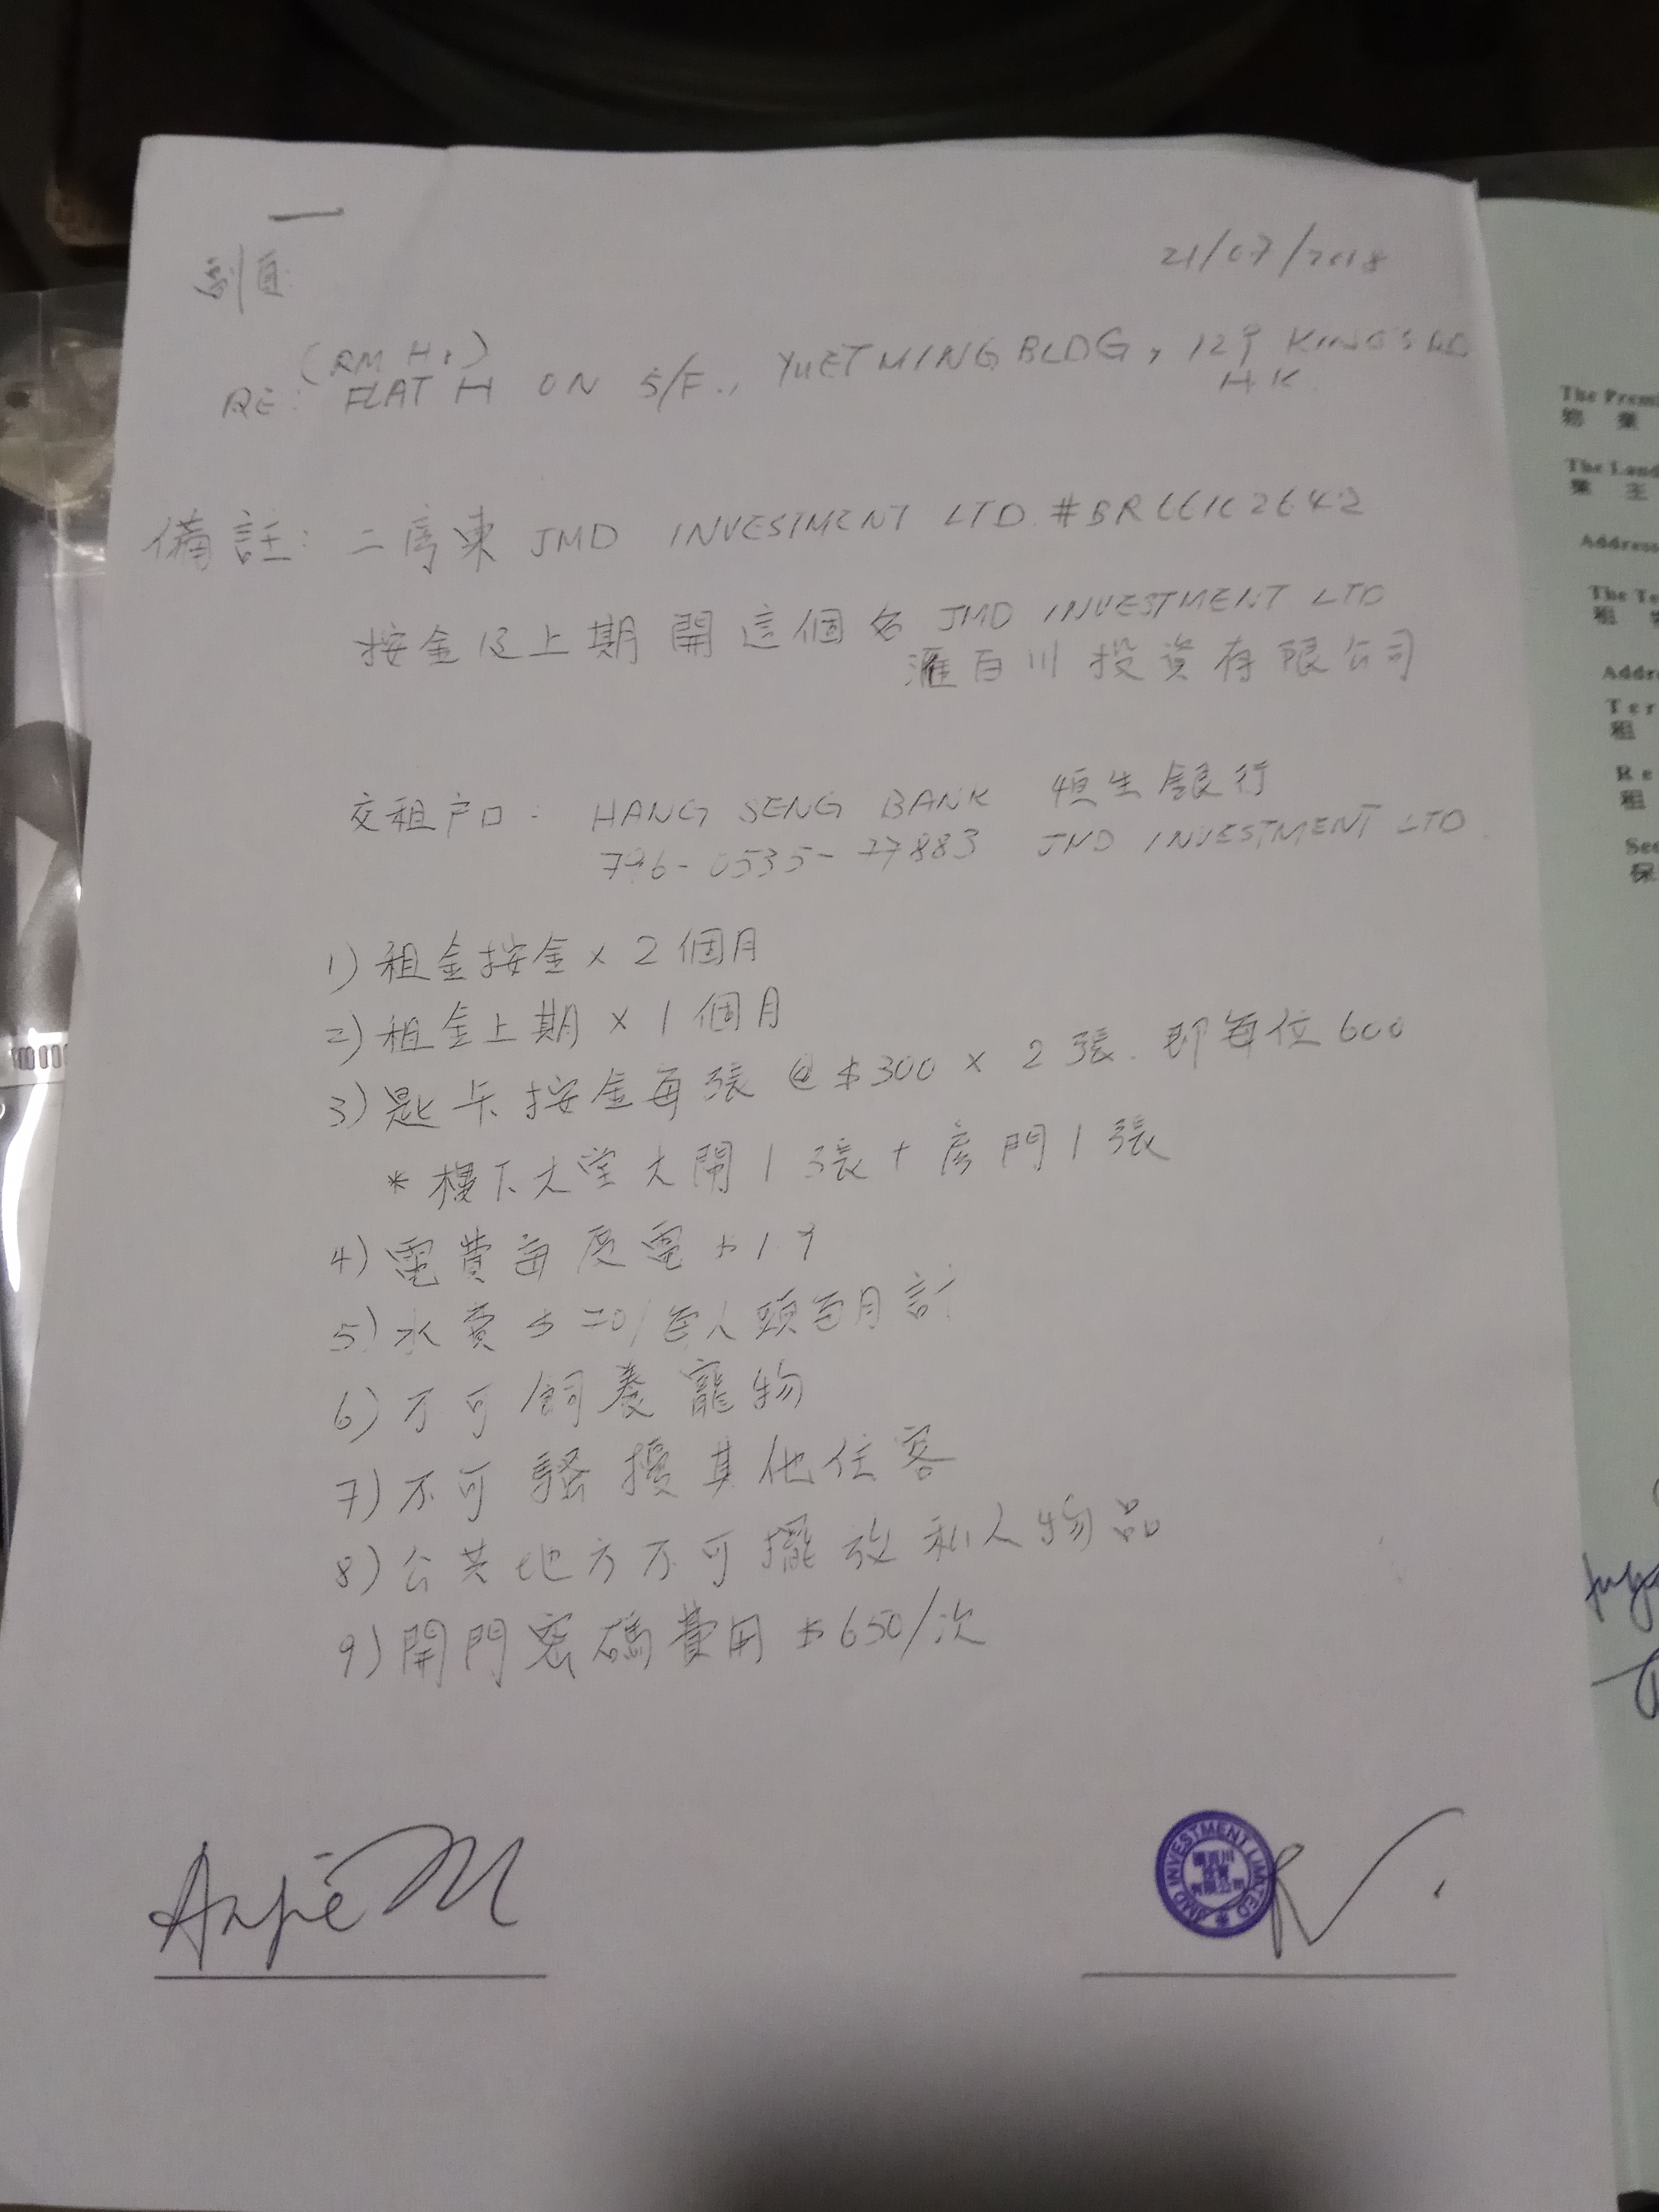 副頁
21/07/2018
(RM H1)
RE: FLAT H ON 5/F., YUET MING BLDG, 129 KING'S RD
H.K.
備註: 二房東 JMD INVESTMENT LTD. #BR66162642
按金及上期開這個名 JMD INVESTMENT LTD
滙百川投資有限公司
交租户口: HANG SENG BANK 恒生銀行
796-0535-77883 JMD INVESTMENT LTD
1) 租金按金 x 2 個月
2) 租金上期 x 1 個月
3) 匙卡按金每張 @ $300 x 2 張. 即每位 600
* 樓下大堂大閘 1 張 + 房門 1 張
4) 電費每度電 $1.9
5) 水費 $20/每人頭每月計
6) 不可飼養寵物
7) 不可騷擾其他住客
8) 公共地方不可擺放私人物品
9) 開門密碼費用 $650/次
Angie M
JMD INVESTMENT LIMITED
滙百川
投資
有限公司
The Premi
物 業
The Land
業 主
Address
The Te
租
Addre
Ter
租
Re
租
Sec
保